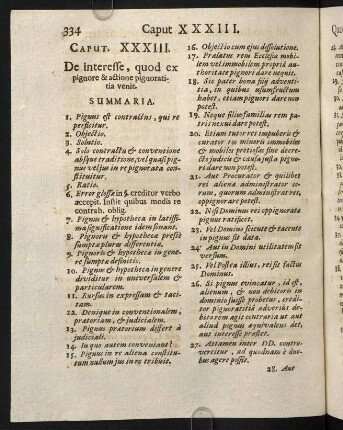 334 Caput XXXIII.
CAPUT. XXXIII.
De interesse, quod ex
pignore & actione pignorati-
tia venit.
SUMMARIA.
1. Pignus est contractus, qui re
perficitur.
2. Objectio.
3. Solutio.
4. Solo contractu & conventione
absque traditione, vel quasi pig-
nus vel jus in re pignorata con-
stituitur.
5. Ratio.
6. Error glossæ in §. creditor verbo
accepit. Instit quibus modis re
contrah. oblig.
7. Pignus & hypotheca in latissi-
ma significatione idem sonant.
8. Pignoris & hypotheca pressè
sumpta plures differentia.
9. Pignoris & hypotheca in gene-
re sumpta definitio.
10. Pignus & hypotheca in genere
dividitur in universalem &
particularem.
11. Rursus in expressum & taci-
tam.
12. Denique in conventionalem,
prætoriam, & judicialem.
13. Pignus prætorium differt à
judiciali.
14. In quo autem conveniant?
15. Pignus in re aliena constitu-
tum nullum jus in re tribuit.
16. Objectio cum ejus dissolutione.
17. Prælatus rem Ecclesia mobi-
lem vel immobilem propriâ au-
thoritate pignori dare nequit.
18. Sic pater bona filii adventi-
tia, in quibus usumfructum
habet, etiam pignori dare non
potest.
19. Neque filius familias rem pa-
tris nexui dare potest.
20. Etiam tutor res impuberis &
curator res minoris immobiles
& mobiles pretiosas sine decre-
to judicis & causa justa pigno-
ri dare non potest.
21. Aut Procurator & quilibet
rei aliena administrator co-
rum, quorum administrat res,
oppignorare potest.
22. Nisi Dominus rei oppignorata
pignus ratificet.
23. Vel Domino sciente & tacente
in pignus sit data.
24. Aut in Domini utilitatem sit
versum.
25. Vel Postea illius, rei sit factus
Dominus.
26. Si pignus evincatur, id est,
alienum, & non debitoris in
dominio fuisse probetur, credi-
tor pignoratitiâ adversus de-
bitorem agit contraria ut aut
aliud pignus æquivalens det,
aut interesse præstet.
27. Attamen inter DD. contro-
vertitur, ad quodnam è duo-
bus agere possit.
28. Aut